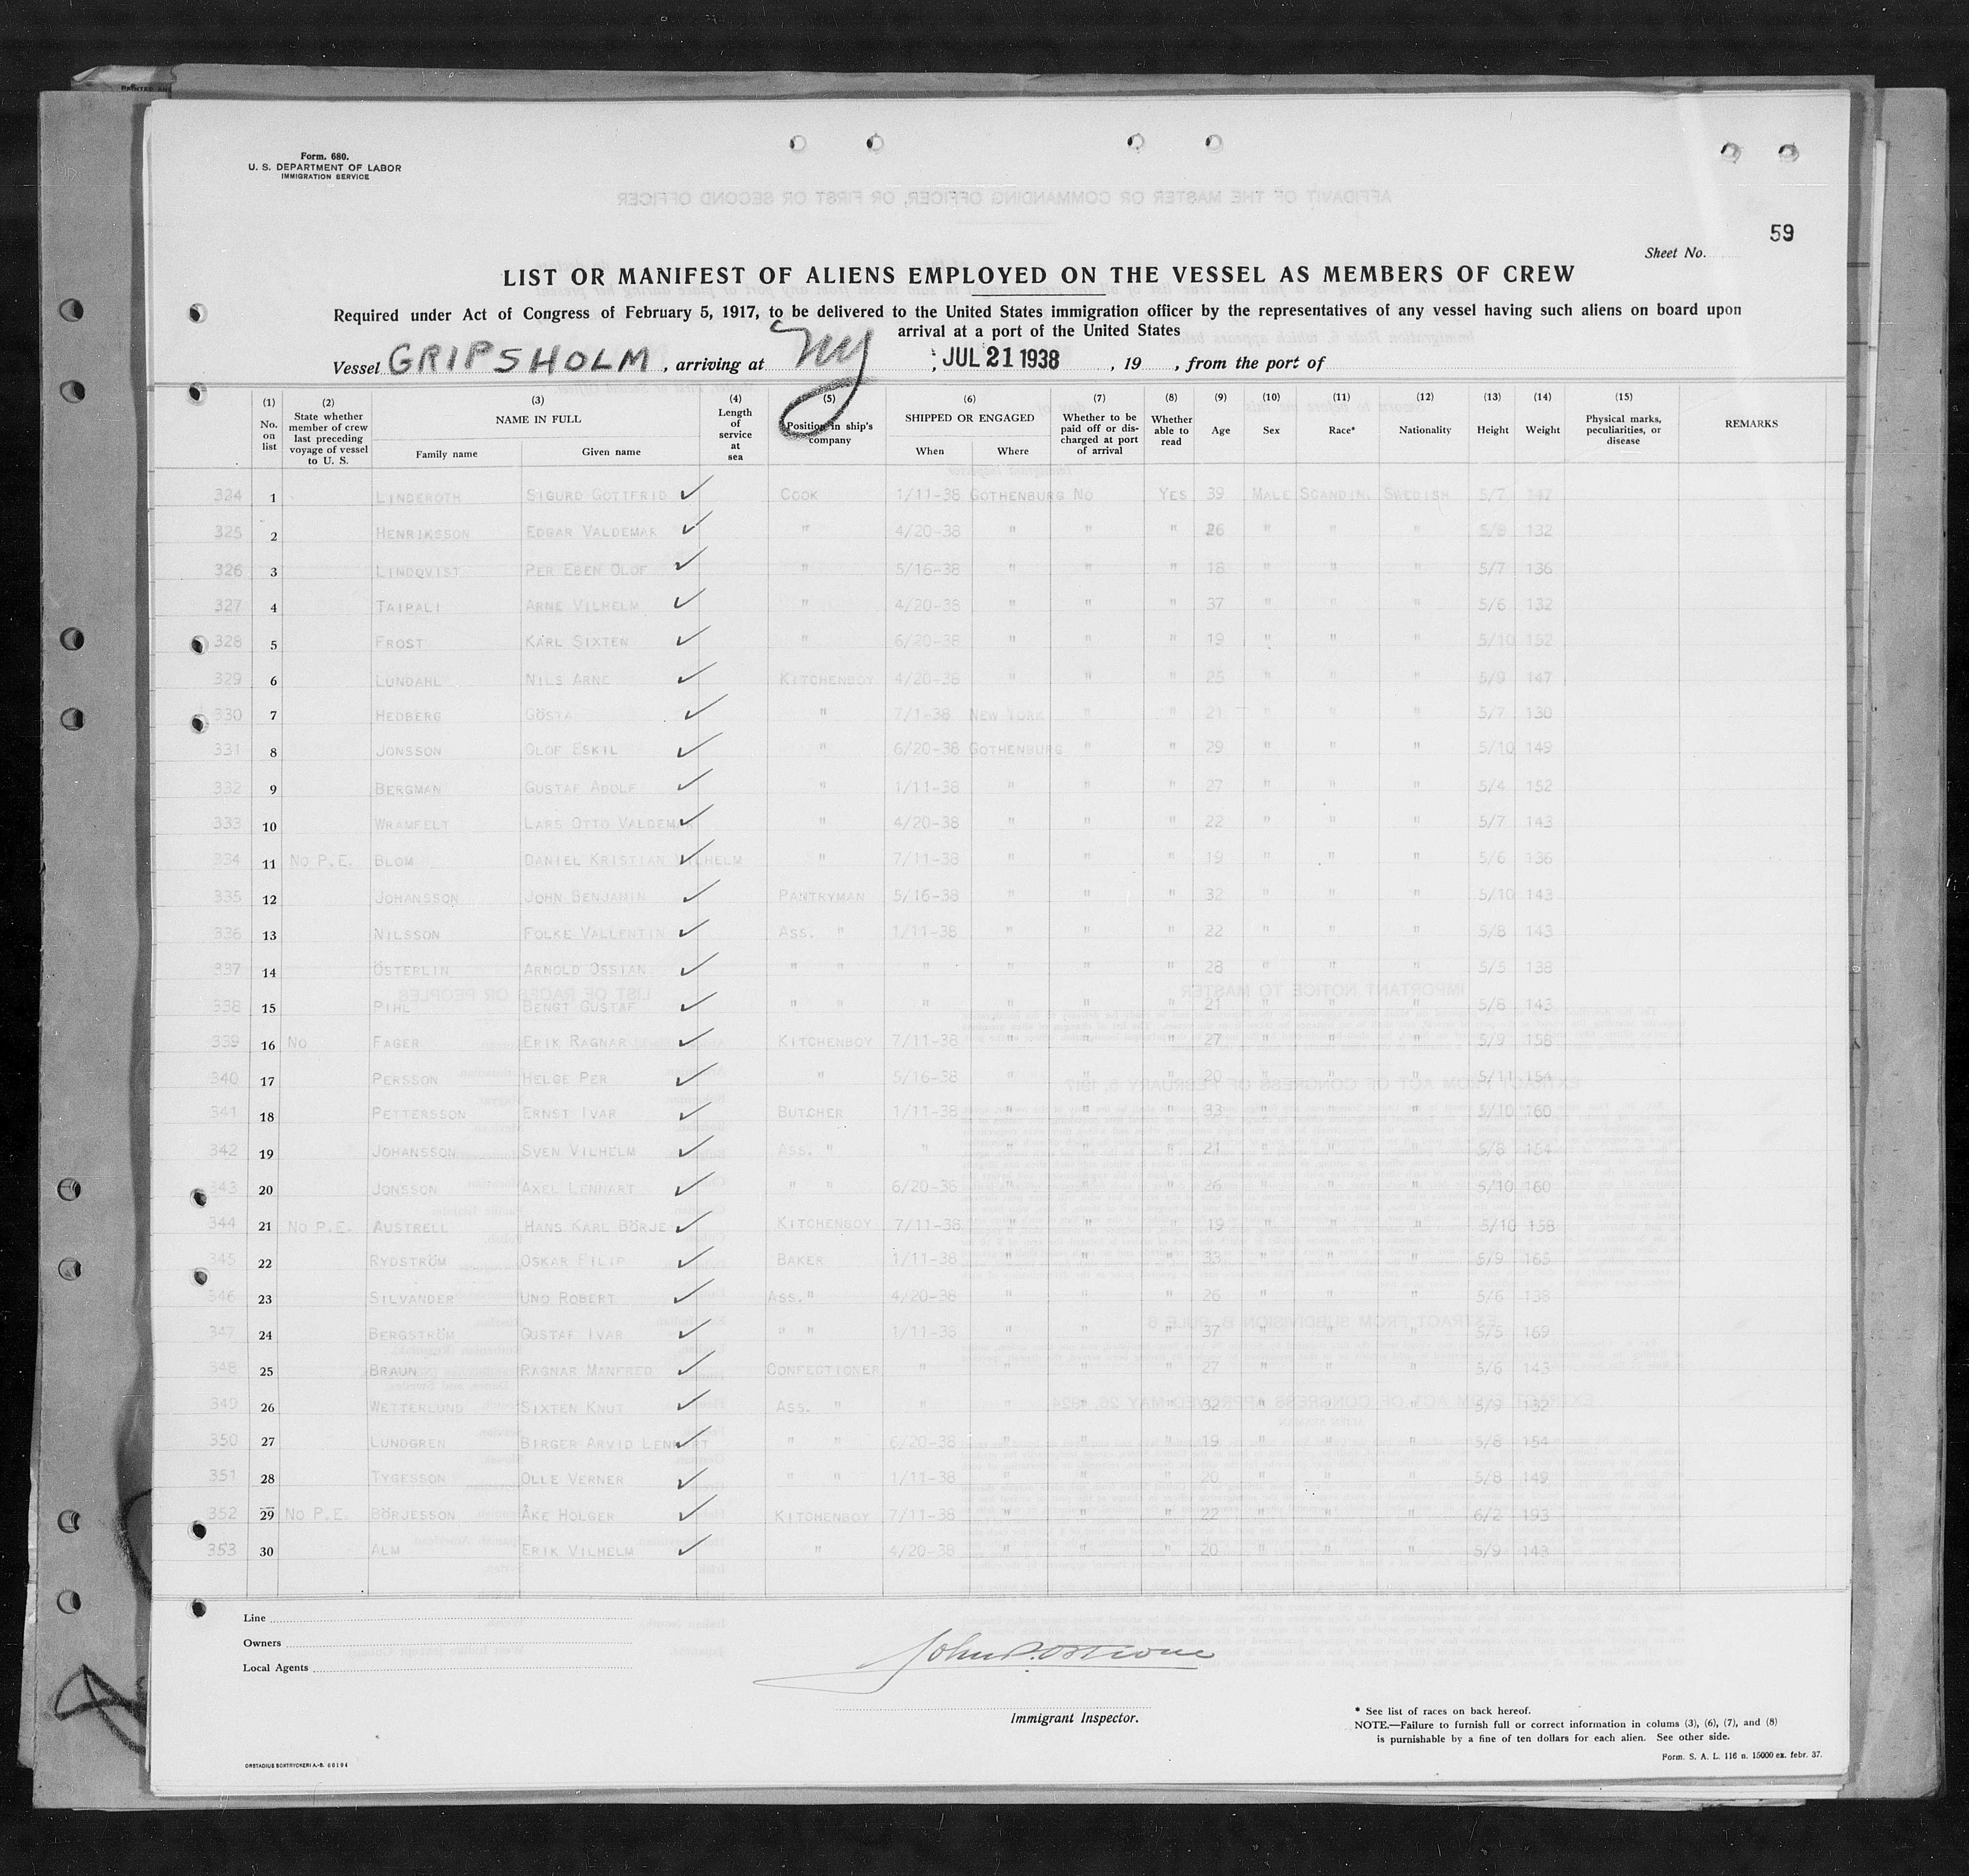 Form. 680.
U. S. DEPARTMENT OF LABOR
IMMIGRATION SERVICE
59
Sheet No.
LIST OR MANIFEST OF ALIENS EMPLOYED ON THE VESSEL AS MEMBERS OF CREW
Required under Act of Congress of February 5, 1917, to be delivered to the United States immigration officer by the representatives of any vessel having such aliens on board upon
arrival at a port of the United States
Vessel GRIPSHOLM, arriving at NY, JUL 21 1938, 19 , from the port of
(1) No. on list (2) State whether member of crew last preceding voyage of vessel to U. S. (3) NAME IN FULL Family name Given name (4) Length of service at sea (5) Position in ship's company (6) SHIPPED OR ENGAGED When Where (7) Whether to be paid off or discharged at port of arrival (8) Whether able to read (9) Age (10) Sex (11) Race* (12) Nationality (13) Height (14) Weight (15) Physical marks, peculiarities, or disease REMARKS
324 1 LINDEROTH SIGURD GOTTFRID ✓ COOK 1/11-38 GOTHENBURG NO YES 39 MALE SCANDIN. SWEDISH 5/7 147
325 2 HENRIKSSON EDGAR VALDEMAR ✓ " 4/20-38 " " " 26 " " " 5/8 132
326 3 LINDQVIST PER EBEN OLOF ✓ " 5/16-38 " " " 18 " " " 5/7 136
327 4 TAIPALI ARNE VILHELM ✓ " 4/20-38 " " " 37 " " " 5/6 132
328 5 FROST KARL SIXTEN ✓ " 6/20-38 " " " 19 " " " 5/10 152
329 6 LUNDAHL NILS ARNE ✓ KITCHENBOY 4/20-38 " " " 25 " " " 5/9 147
330 7 HEDBERG GÖSTA ✓ " 7/1-38 NEW YORK " " 21 " " " 5/7 130
331 8 JONSSON OLOF ESKIL ✓ " 6/20-38 GOTHENBURG " " 29 " " " 5/10 149
332 9 BERGMAN GUSTAF ADOLF ✓ " 1/11-38 " " " 27 " " " 5/4 152
333 10 WRAMFELT LARS OTTO VALDEMAR ✓ " 4/20-38 " " " 22 " " " 5/7 143
334 11 NO P.E. BLOM DANIEL KRISTIAN VILHELM ✓ " 7/11-38 " " " 19 " " " 5/6 136
335 12 JOHANSSON JOHN BENJAMIN ✓ PANTRYMAN 5/16-38 " " " 32 " " " 5/10 143
336 13 NILSSON FOLKE VALLENTIN ✓ ASS. " 1/11-38 " " " 22 " " " 5/8 143
337 14 ÖSTERLIN ARNOLD OSSIAN ✓ " " " " " " 28 " " " 5/5 138
338 15 PIHL BENGT GUSTAF ✓ " " " " " " 21 " " " 5/8 143
339 16 NO FAGER ERIK RAGNAR ✓ KITCHENBOY 7/11-38 " " " 27 " " " 5/9 158
340 17 PERSSON HELGE PER ✓ " 5/16-38 " " " 20 " " " 5/11 154
341 18 PETTERSSON ERNST IVAR ✓ BUTCHER 1/11-38 " " " 33 " " " 5/10 160
342 19 JOHANSSON SVEN VILHELM ✓ ASS. " " " " " 21 " " " 5/8 154
343 20 JONSSON AXEL LENNART ✓ " " 6/20-38 " " " 26 " " " 5/10 160
344 21 NO P.E. AUSTRELL HANS KARL BÖRJE ✓ KITCHENBOY 7/11-38 " " " 19 " " " 5/10 158
345 22 RYDSTRÖM OSKAR FILIP ✓ BAKER 1/11-38 " " " 33 " " " 5/9 165
346 23 SILVANDER UNO ROBERT ✓ ASS. " 4/20-38 " " " 26 " " " 5/6 138
347 24 BERGSTRÖM GUSTAF IVAR ✓ " " 1/11-38 " " " 37 " " " 5/5 169
348 25 BRAUN RAGNAR MANFRED ✓ CONFECTIONER " " " " 27 " " " 5/6 143
349 26 WETTERLUND SIXTEN KNUT ✓ ASS. " " " " " 32 " " " 5/9 132
350 27 LUNDGREN BIRGER ARVID LENNART ✓ " " 6/20-38 " " " 19 " " " 5/8 154
351 28 TYGESSON OLLE VERNER ✓ " " 1/11-38 " " " 20 " " " 5/8 149
352 29 NO P.E. BÖRJESSON ÅKE HOLGER ✓ KITCHENBOY 7/11-38 " " " 22 " " " 6/2 193
353 30 ALM ERIK VILHELM ✓ " 4/20-38 " " " 20 " " " 5/9 143
Line
Owners
Local Agents
Immigrant Inspector.
* See list of races on back hereof.
NOTE.—Failure to furnish full or correct information in colums (3), (6), (7), and (8)
is purnishable by a fine of ten dollars for each alien. See other side.
Form. S. A. L. 116 n. 15000 ex. febr. 37.